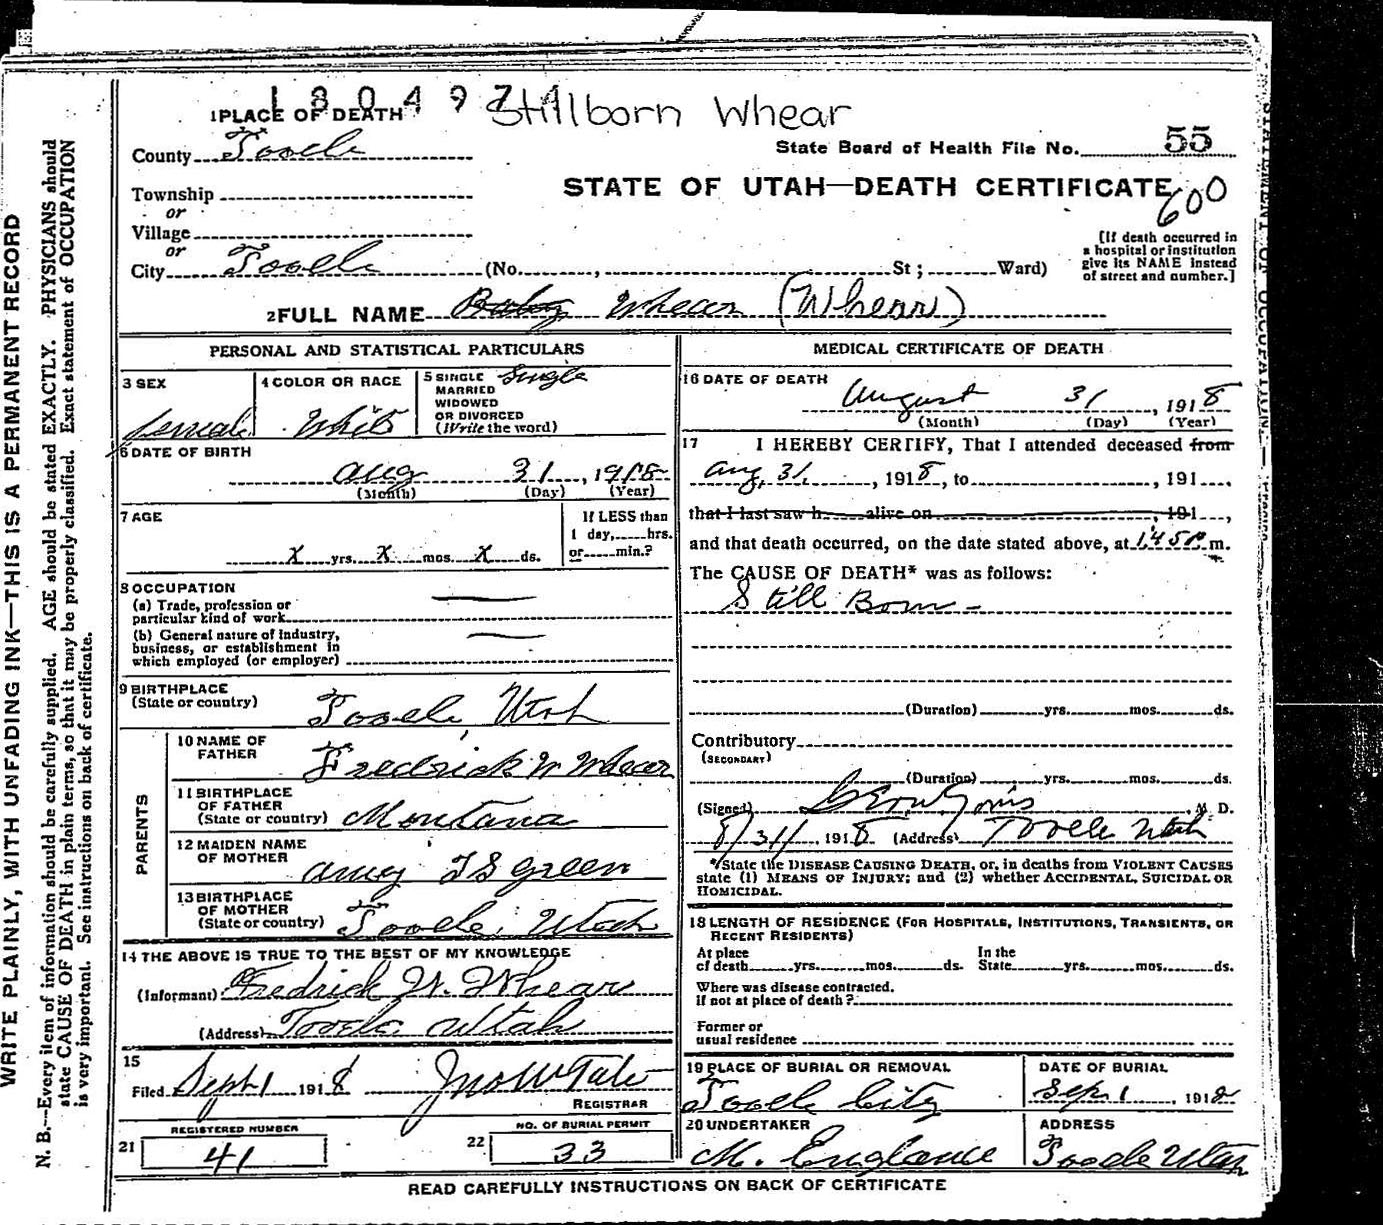 1 3 0 4 9 7 4 Stillborn Whear
1 PLACE OF DEATH
State Board of Health File No. 55
County Tooele
STATE OF UTAH—DEATH CERTIFICATE
600
Township
or
Village
or
City Tooele (No. , St ; Ward)
[If death occurred in
a hospital or institution
give its NAME instead
of street and number.]
2 FULL NAME Baby Whear (Whear)
PERSONAL AND STATISTICAL PARTICULARS
3 SEX
female
4 COLOR OR RACE
White
5 SINGLE Single
MARRIED
WIDOWED
OR DIVORCED
(Write the word)
6 DATE OF BIRTH
Aug 31, 1918
(Month) (Day) (Year)
7 AGE
X yrs. X mos. X ds.
If LESS than
1 day, hrs.
or min.?
8 OCCUPATION
(a) Trade, profession or
particular kind of work
(b) General nature of industry,
business, or establishment in
which employed (or employer)
9 BIRTHPLACE
(State or country) Tooele Utah
PARENTS
10 NAME OF
FATHER Fredrick W Whear
11 BIRTHPLACE
OF FATHER
(State or country) Montana
12 MAIDEN NAME
OF MOTHER Amey I S Green
13 BIRTHPLACE
OF MOTHER
(State or country) Tooele, Utah
14 THE ABOVE IS TRUE TO THE BEST OF MY KNOWLEDGE
(Informant) Fredrick W. Whear
(Address) Tooele Utah
15
Filed Sept 1 1918 Jno W Tate
REGISTRAR
REGISTERED NUMBER
21 41
NO. OF BURIAL PERMIT
22 33
MEDICAL CERTIFICATE OF DEATH
16 DATE OF DEATH
August 31, 1918
(Month) (Day) (Year)
17 I HEREBY CERTIFY, That I attended deceased from
Aug. 31, 1918, to , 191
that I last saw h alive on , 191 ,
and that death occurred, on the date stated above, at 1:45 P m.
The CAUSE OF DEATH* was as follows:
Still Born -
(Duration) yrs. mos. ds.
Contributory
(SECONDARY)
(Duration) yrs. mos. ds.
(Signed) M. D.
8/31/, 1918 (Address) Tooele Utah
*State the DISEASE CAUSING DEATH, or, in deaths from VIOLENT CAUSES
state (1) MEANS OF INJURY; and (2) whether ACCIDENTAL, SUICIDAL OR
HOMICIDAL.
18 LENGTH OF RESIDENCE (FOR HOSPITALS, INSTITUTIONS, TRANSIENTS, OR
RECENT RESIDENTS)
At place In the
of death yrs. mos. ds. State yrs. mos. ds.
Where was disease contracted,
if not at place of death?
Former or
usual residence
19 PLACE OF BURIAL OR REMOVAL
Tooele City
DATE OF BURIAL
Sep. 1, 1918
20 UNDERTAKER
M. Englance
ADDRESS
Tooele Utah
READ CAREFULLY INSTRUCTIONS ON BACK OF CERTIFICATE
WRITE PLAINLY, WITH UNFADING INK—THIS IS A PERMANENT RECORD
N. B.—Every item of information should be carefully supplied. AGE should be stated EXACTLY. PHYSICIANS should
state CAUSE OF DEATH in plain terms, so that it may be properly classified. Exact statement of OCCUPATION
is very important. See instructions on back of certificate.